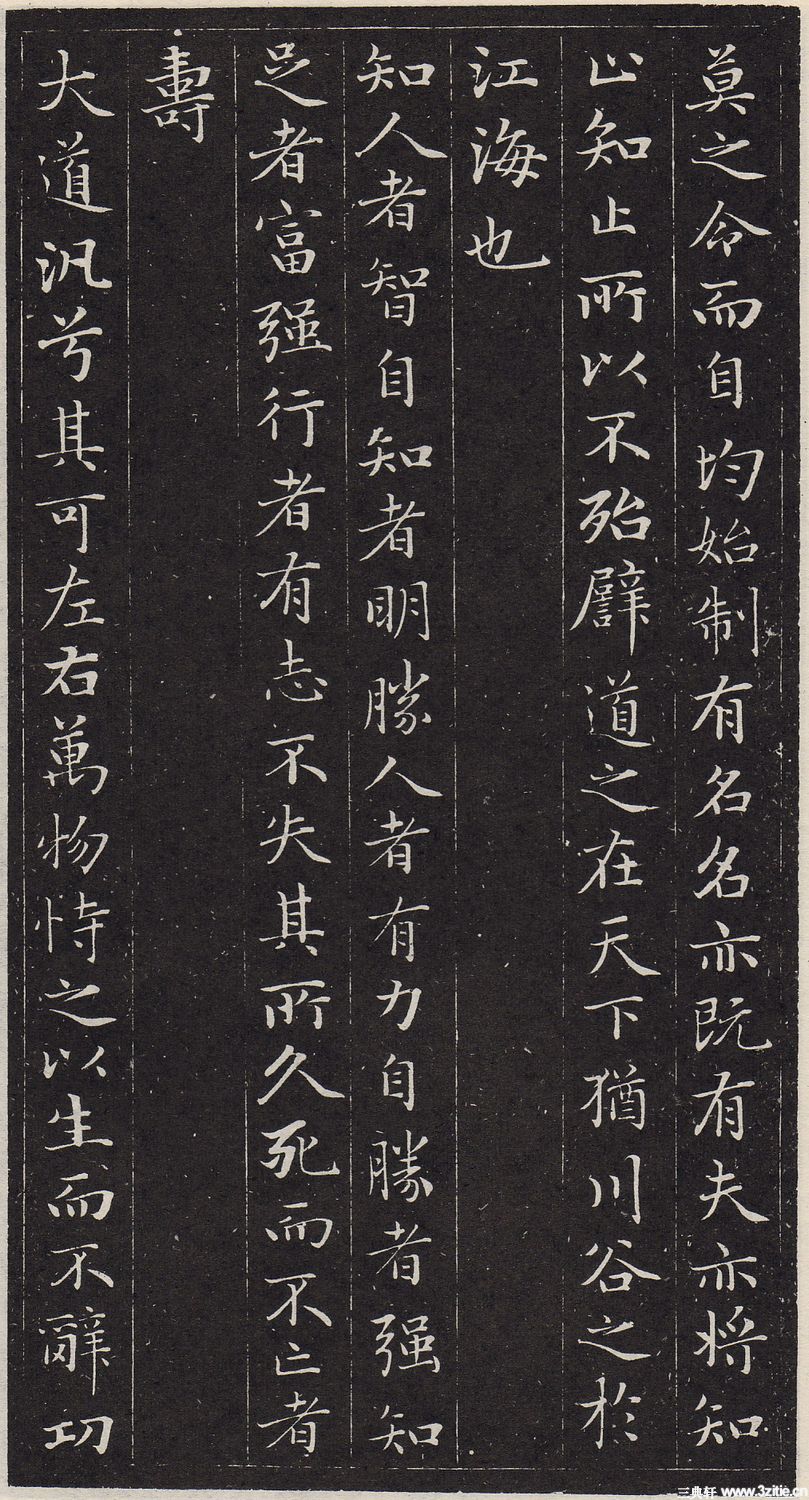 莫之令而自均始制有名名亦既有夫亦将知
止知止所以不殆譬道之在天下猶川谷之於
江海也
知人者智自知者明勝人者有力自勝者强知
足者富强行者有志不失其所久死而不亡者
壽
大道汎兮其可左右萬物恃之以生而不辭功
三典轩 www.3zitie.cn